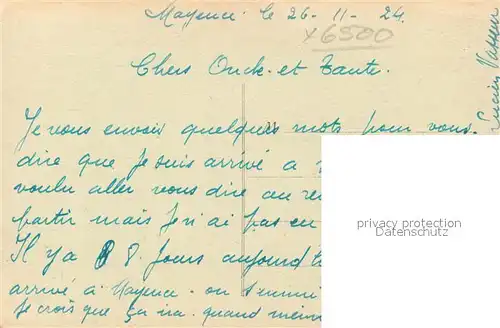 Mayence le 26-11-24
x6500
Chers Oncle et Tante.
Je vous envoir quelques mots pour vous
dire que Je suis arrivé a
voulu aller vous dire au re
partir mais Je n'ai pas eu
Il y a 8 Jours aujourd
arrivé à Mayence. on s'ennui
Je crois que ça va quand mem
privacy protection
Datenschutz